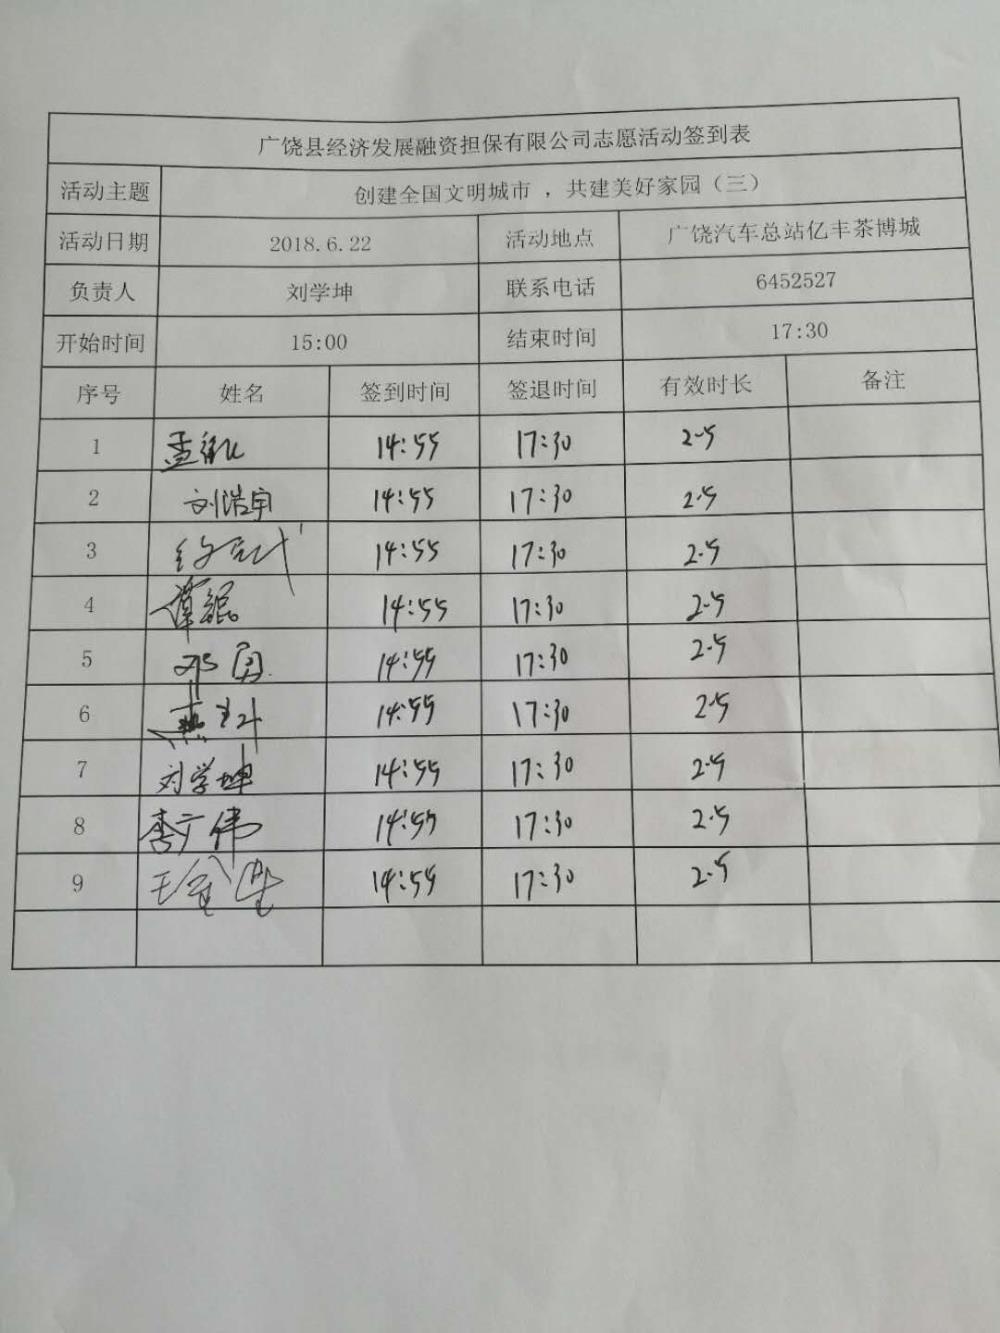 广饶县经济发展融资担保有限公司志愿活动签到表
活动主题 创建全国文明城市 ，共建美好家园（三）
活动日期 2018.6.22 活动地点 广饶汽车总站亿丰茶博城
负责人 刘学坤 联系电话 6452527
开始时间 15:00 结束时间 17:30
序号 姓名 签到时间 签退时间 有效时长 备注
1 14:55 17:30 2.5
2 刘浩宇 14:55 17:30 2.5
3 14:55 17:30 2.5
4 14:55 17:30 2.5
5 邓勇 14:55 17:30 2.5
6 14:55 17:30 2.5
7 刘学坤 14:55 17:30 2.5
8 李广伟 14:55 17:30 2.5
9 14:55 17:30 2.5